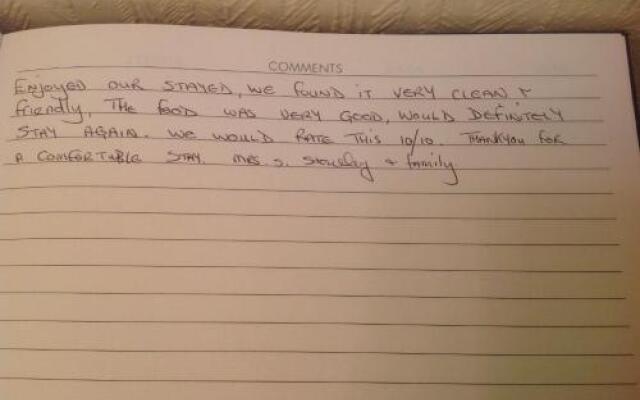 COMMENTS
ENJOYED OUR STAYED, WE FOUND IT VERY CLEAN &
friendly, THE FOOD WAS VERY GOOD, WOULD DEFINITELY
STAY AGAIN. WE WOULD RATE THIS 10/10. THANKYOU FOR
A COMFORTABLE STAY. MRS. S. & family